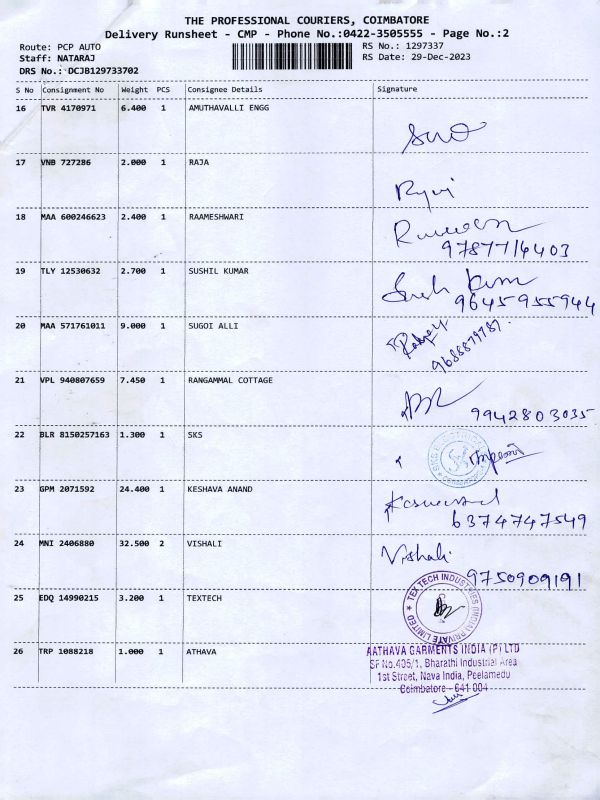 THE PROFESSIONAL COURIERS, COIMBATORE
Delivery Runsheet - CMP - Phone No.:0422-3505555 - Page No.:2
Route: PCP AUTO RS No.: 1297337
Staff: NATARAJ RS Date: 29-Dec-2023
DRS No.: DCJB129733702
S No Consignment No Weight PCS Consignee Details Signature
16 TVR 4170971 6.400 1 AMUTHAVALLI ENGG
17 VNB 727286 2.000 1 RAJA
18 MAA 600246623 2.400 1 RAAMESHWARI
9787714403
19 TLY 12530632 2.700 1 SUSHIL KUMAR
9645955944
20 MAA 571761011 9.000 1 SUGOI ALLI
21 VPL 940807659 7.450 1 RANGAMMAL COTTAGE
9942803035
22 BLR 8150257163 1.300 1 SKS
23 GPM 2071592 24.400 1 KESHAVA ANAND
6374747549
24 MNI 2406880 32.500 2 VISHALI
Vishali
9750909191
25 EDQ 14990215 3.200 1 TEXTECH
TEX TECH INDUSTRIES (INDIA) PRIVATE LIMITED
26 TRP 1088218 1.000 1 ATHAVA
AATHAVA GARMENTS INDIA (P) LTD
SF No.405/1, Bharathi Industrial Area
1st Street, Nava India, Peelamedu
Coimbatore - 641 004